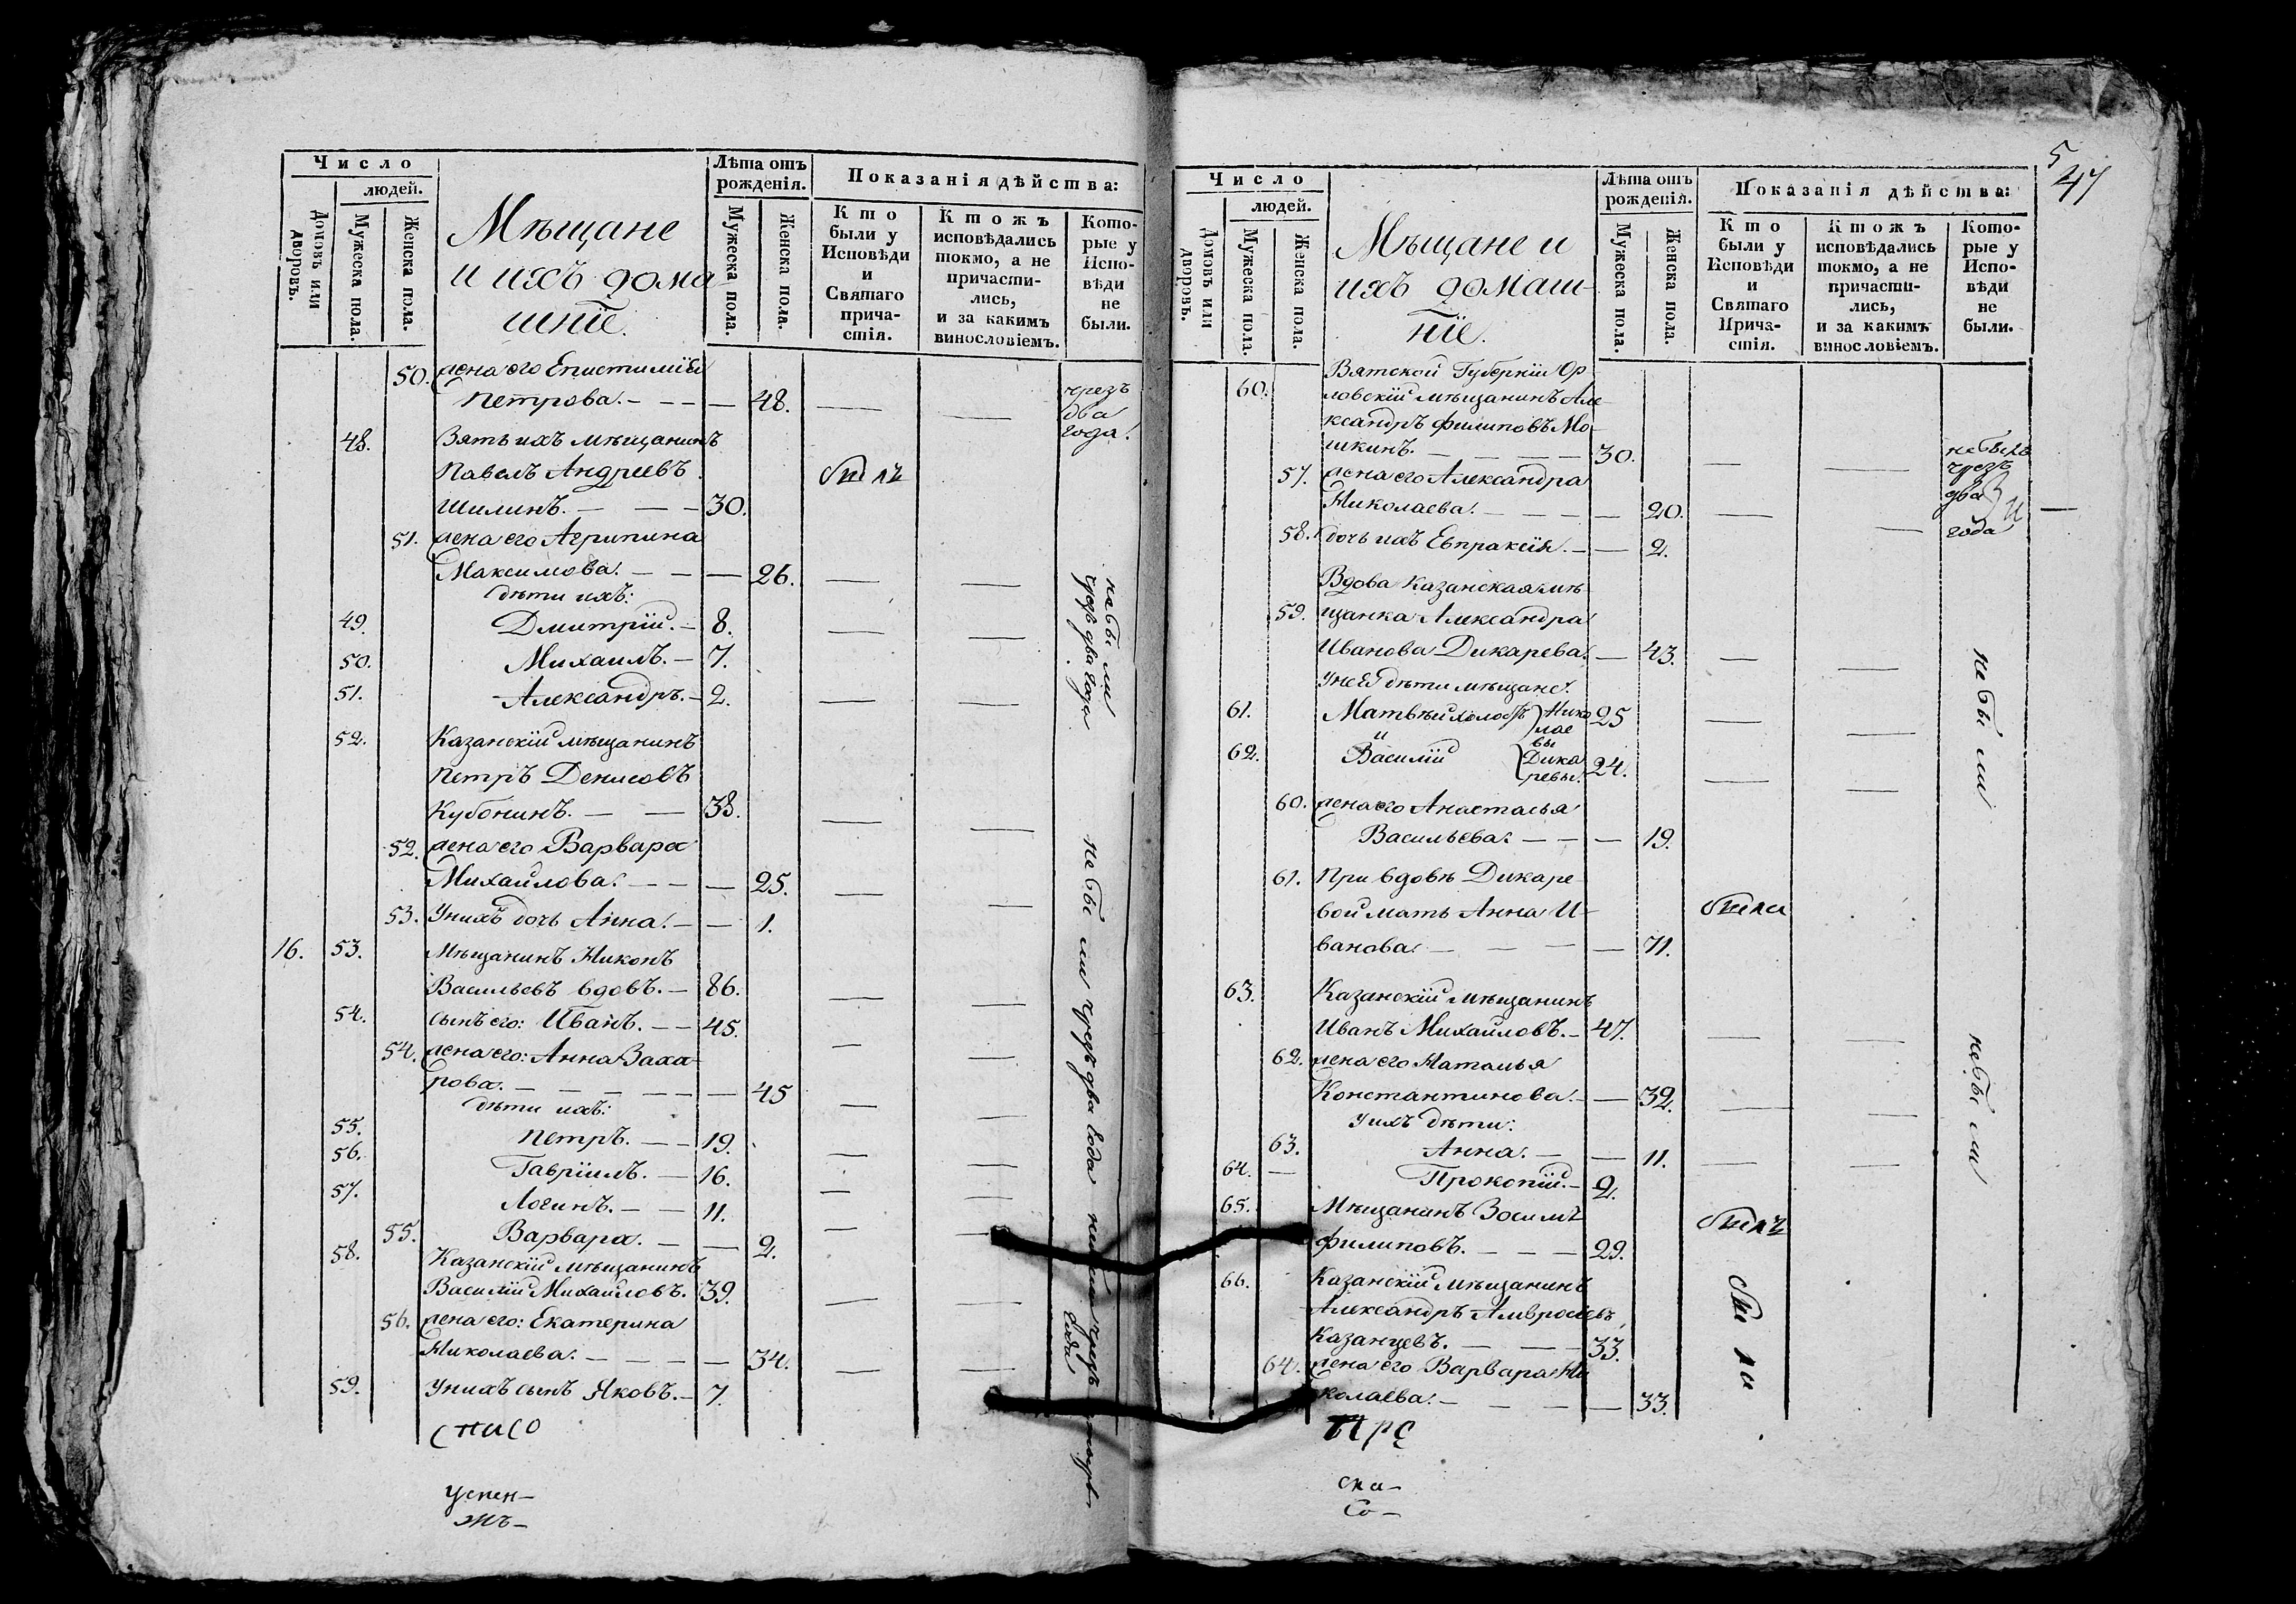 Число
людей.
Домовъ или дворовъ.
Мужеска пола.
Женска пола.
Мѣщане
и ихъ дома
шнїе.
Лѣта отъ
рожденія.
Мужеска пола.
Женска пола.
Показанія дѣйства:
Кто
были у
Исповѣди
и
Святаго
прича-
стія.
Ктожъ
исповѣдались
токмо, а не
причасти-
лись,
и за какимъ
винословіемъ.
Кото-
рые у
Испо-
вѣди
не
были.
50. жена его Епистимїя
Петрова. — — 48. — — чрезъ
два
года.
48. Зять ихъ мѣщанинъ
Павелъ Андреевъ былъ
Шилинъ. — — 30.
51. жена его Агрипина
Максимова. — — 26. — —
дѣти ихъ:
49. Дмитрїй. — 8. — —
50. Михаилъ. — 7.
51. Александръ. — 2. — —
не бы ли
чрезъ два года
52. Казанскїй мѣщанинъ
Петръ Денисовъ
Кубонинъ. — — 38. — —
52. жена его Варвара
Михайлова. — — 25. — —
53. Унихъ дочь Анна. — — 1.
16. 53. Мѣщанинъ Никонъ
Васильевъ вдовъ. — 86. — —
54. сынъ его: Иванъ. — — 45. — —
54. жена его: Анна Заха-
рова. — — 45 — —
дѣти ихъ:
55. Петръ. — — 19. — —
56. Гаврїилъ. — 16. — —
57. Логинъ. — — 11. — —
55. Варвара. — — 2.
58. Казанскїй мѣщанинъ
Василїй Михайловъ. 39. — —
56. жена его: Екатерина
Николаева. — — 34. — —
59. Унихъ сынъ Яковъ. — 7.
не бы ли чрезъ два года
года
спи со
успен-
Число
людей.
Домовъ или дворовъ.
Мужеска пола.
Женска пола.
Мѣщане и
ихъ домаш-
нїе.
Лѣта отъ
рожденія.
Мужеска пола.
Женска пола.
Показанія дѣйства:
Кто
были у
Исповѣди
и
Святаго
Прича-
стія.
Ктожъ
исповѣдались
токмо, а не
причасти-
лись,
и за какимъ
винословіемъ.
Кото-
рые у
Испо-
вѣди
не
были.
5
47
60. Вятской Губернїи Ор-
ловскїй мѣщанинъ Але-
ксандръ Филиповъ Мо-
шкинъ. — — 30. — —
57. жена его Александра
Николаева. — — 20. — —
58. дочь ихъ Евпраксїя. — — 2.
не былъ
чрезъ
два
года
Вдова Казанская мѣ-
59. щанка Александра
Иванова Дикарева. — 43. — —
У неё дѣти мѣщане.
61. Матвѣй холостъ Нико 25 — —
и лае
62. Василїй вы Дика 24. — —
ревы.
60. жена его Анастасья
Васильева. — — — 19.
не бы ли
61. При вдовѣ Дикаре-
вой мать Анна И- были
ванова. — — — 71.
63. Казанскїй мѣщанинъ
Иванъ Михайловъ. — 47. — —
62. жена его Наталья
Константинова. — — 32. — —
У ихъ дѣти:
63. Анна. — — 11. — —
64. — Прокопїй. — 2.
не бы ли
65. Мѣщанинъ Зосимъ былъ
Филиповъ. — — — 29.
66. Казанскїй мѣщанинъ
Александръ Амвросїевъ
Казанцевъ. — — 33.
64. жена его Варвара Ни
колаева. — — — 33.
бы ли
пре
ска-
Со-